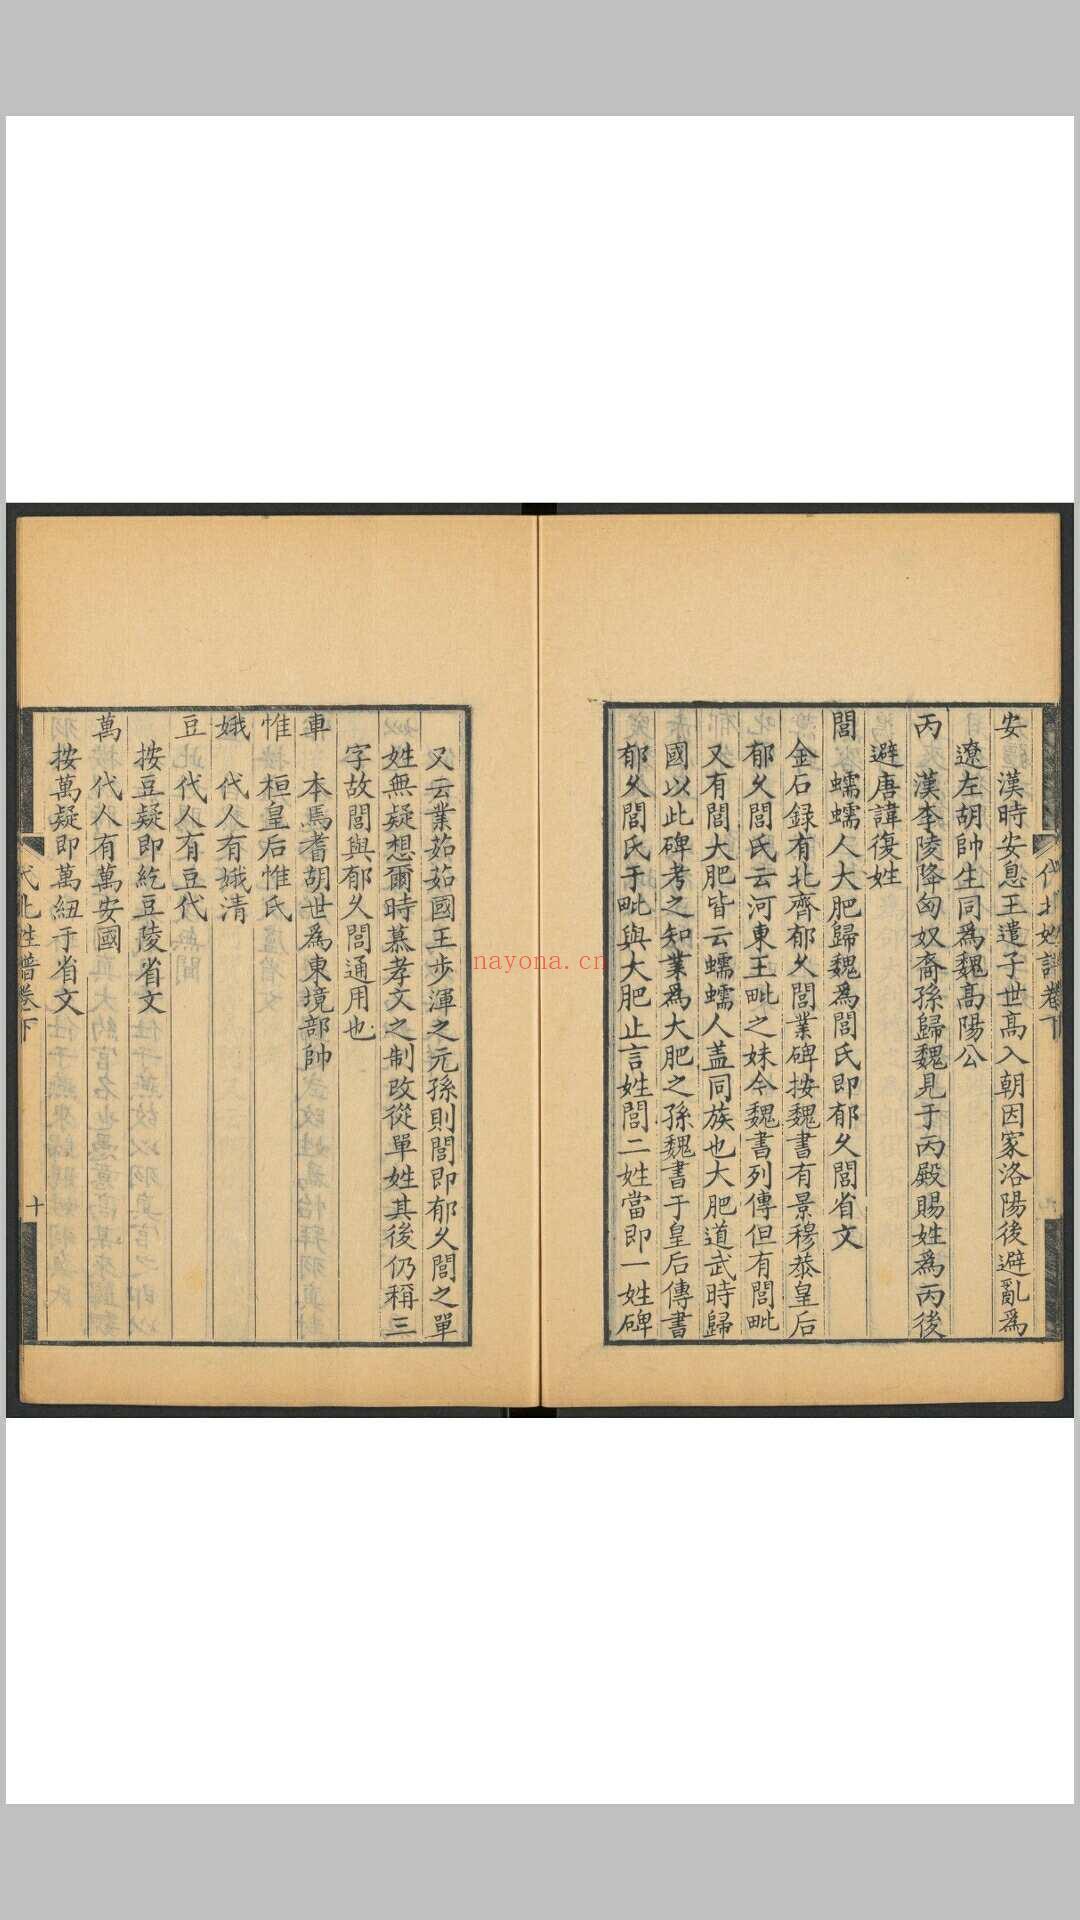 安　漢時安息王遣子世高入朝因家洛陽後避亂爲
遼左胡帥生同爲魏高陽公
丙　漢李陵降匈奴裔孫歸魏見于丙殿賜姓爲丙後
避唐諱復姓
閭　蠕蠕人大肥歸魏爲閭氏即郁久閭省文
金石録有北齊郁久閭業碑按魏書有景穆恭皇后
郁久閭氏云河東王毗之妹今魏書列傳但有閭毗
又有閭大肥皆云蠕蠕人蓋同族也大肥道武時歸
國以此碑考之知業爲大肥之孫魏書于皇后傳書
郁久閭氏于毗與大肥止言姓閭二姓當即一姓碑
代北姓譜卷下
又云業茹茹國王步渾之元孫則閭即郁久閭之單
姓無疑想爾時慕孝文之制改從單姓其後仍稱三
字故閭與郁久閭通用也
車　本馬耆胡世爲東境部帥
惟　桓皇后惟氏
娥　代人有娥清
豆　代人有豆代
按豆疑即紇豆陵省文
萬　代人有萬安國
按萬疑即萬紐于省文
代北姓譜卷下
十
nayona.cn